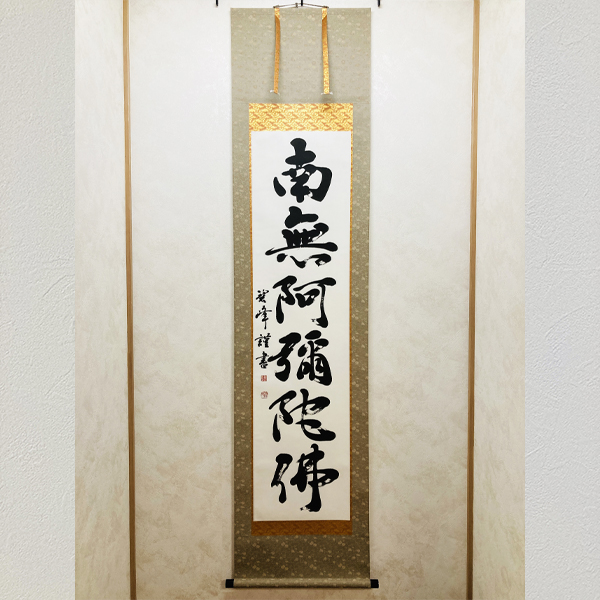 南無阿彌陀佛
峰謹書